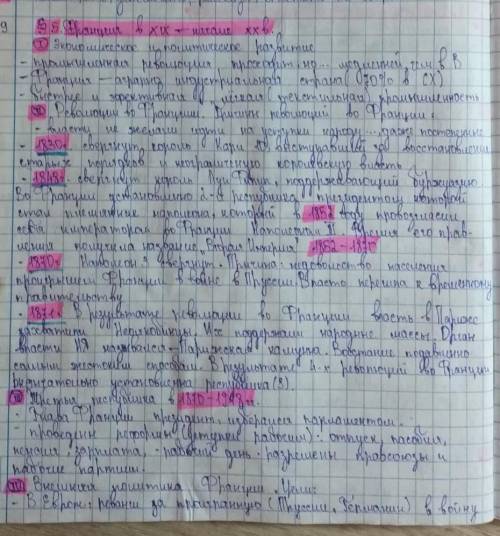 9
§5. Франция в XIX – начале XX в.
I Экономическое и политическое развитие
- промышленная революция проходит, но ... медленней, чем в В
- Франция – аграрно индустриальная страна (70% в СХ)
- быстрее и эффективней лёгкая (текстильная) промышленность
II Революции во Франции. Причины революций во Франции:
- власть не желает идти на уступки народу... даже постепенно
- 1830г. свергнут король Карл 10, выступавший за восстановление
старых порядков и неограниченную королевскую власть
- 1848г. свергнут король Луи Филипп, поддерживающий буржуазию
Во Франции установлена 2-я республика, президентом которой
стал племянник Наполеона, который в 1852 году провозгласил
себя императором Франции Наполеоном III. Время его прав-
ления получила название "Вторая Империя" 1852-1870
- 1870г. Наполеон 3 свергнут. Причина: недовольство населения
проигрышем Франции в войне в Пруссии. Власть перешла к временному
правительству
- 1871г. В результате революции во Франции власть в Париже
захватили Неоякобинцы. Их поддержали народные массы. Орган
власти назывался Парижская коммуна. Восстание подавлено
самым жестоким способом. В результате 4-х революций во Франции
окончательно установлена республика (3).
III Третья республика в 1870-1913 гг
- Глава Франции президент, избирался парламентом.
- проведены реформы (уступки рабочим): отпуск, пособия,
пенсия, зарплата, рабочий день. разрешены профсоюзы и
рабочие партии.
Внешняя политика Франции. Цели:
- В Европе: реванш за проигранную (Пруссии, Германии) в войну